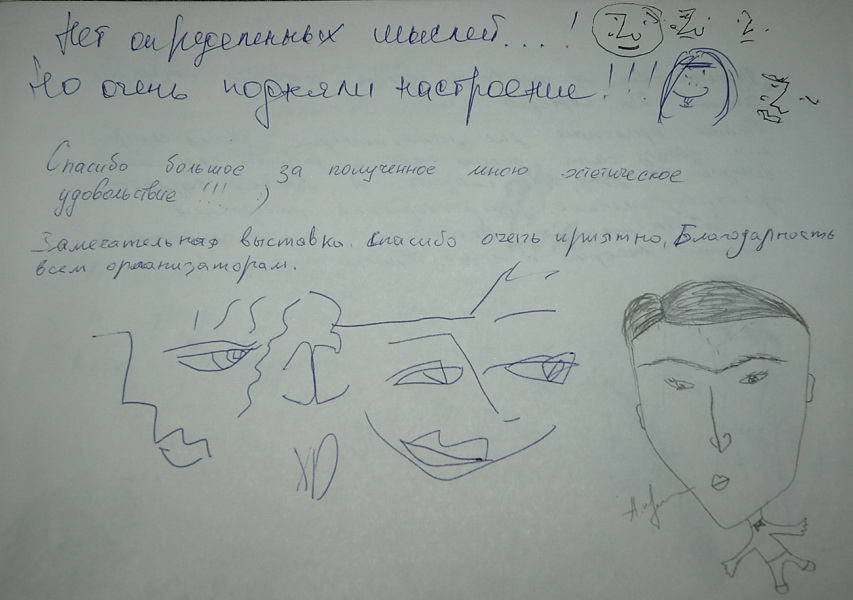 Нет определенных мыслей....!
Но очень подняли настроение!!!
Спасибо большое за полученное мною эстетическое
удовольствие!!! :)
Замечательная выставка. Спасибо очень приятно, Благодарность
всем организаторам.
XD